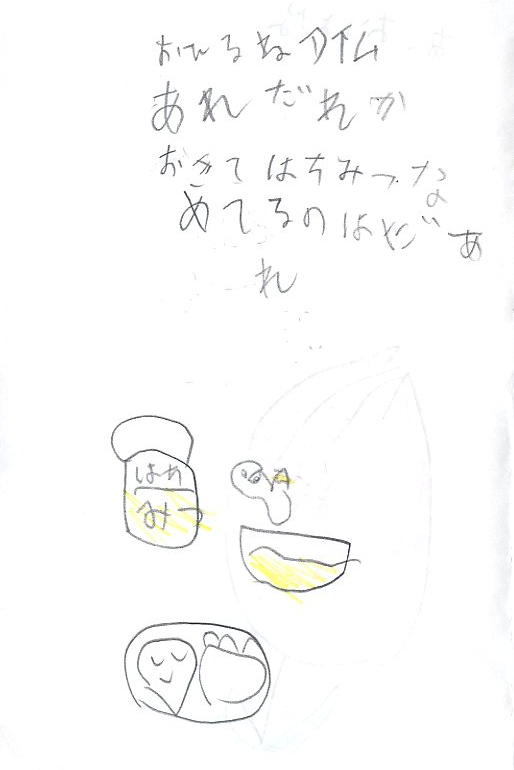 おひるねタイム
あれだれか
おきてはちみつな
めてるのはだあ
れ
はち
みつ